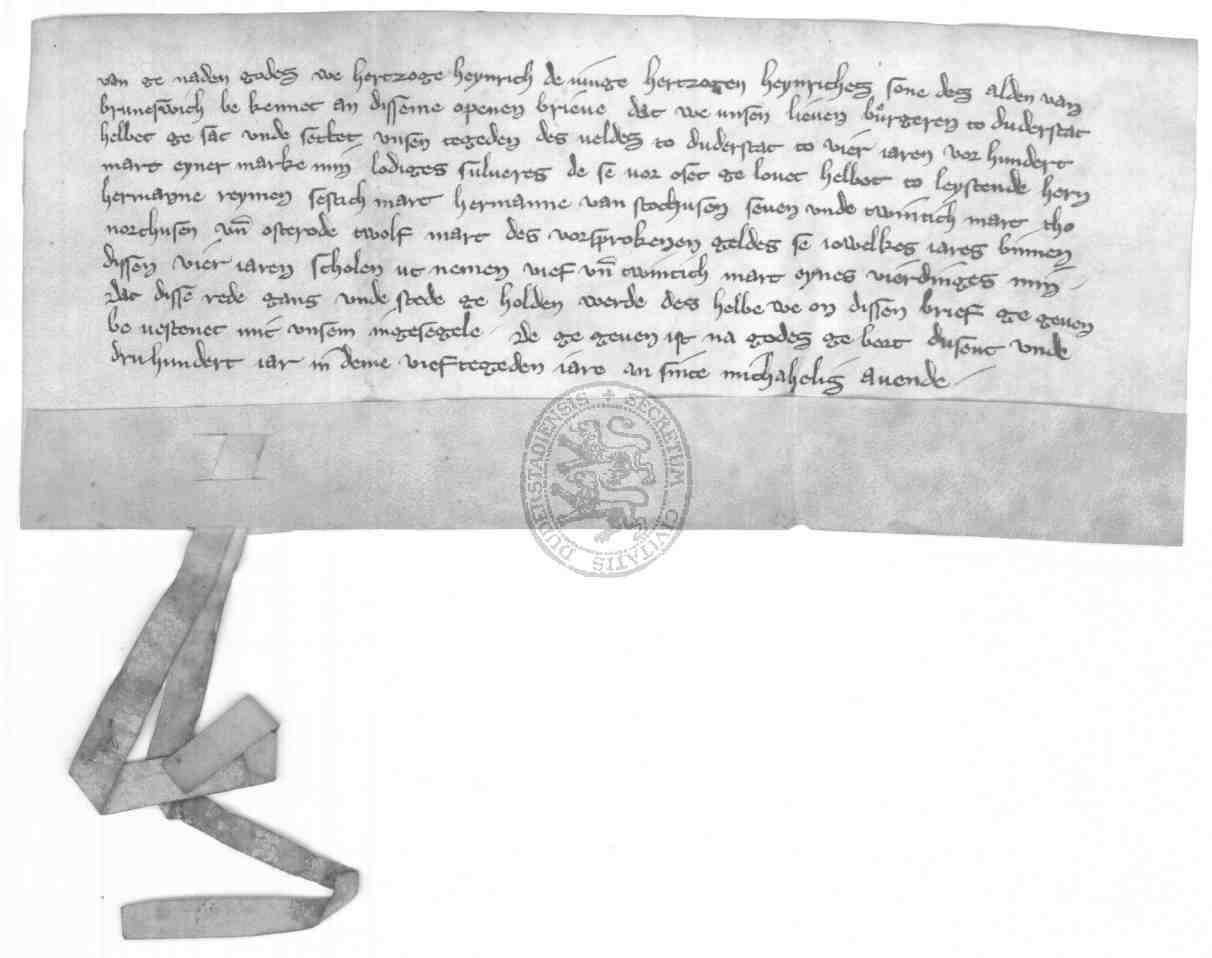 van ge naden godes we hertzoge heynrich de iunge hertzogen heynriches sone des alden van
bruneswich be kennet an disseme openen brieve dat we unsen lieven bůrgeren to duderstat
hebbet ge sat unde settet unsen tegeden des veldes to duderstat to vier iaren vor hundert
mart eyner marke min lodiges sulveres de se vor oset ge lovet hebbet to leystende hern
hermanne reymen sestich mart hermanne van stochusen seven unde twintich mart tho
northusen vn̄ osterode twolf mart des vorsprokenen geldes se iowelkes iares binnen
dissen vier iaren scholen ut nemen vief vn̄ twintich mart eynes vierdinges min
Dat disse rede gans unde stede ge holden werde des hebbe we on dissen brief ge geven
be vestenet mit unsem ingesegele De ge geven ist na godes ge bort dusent unde
druhundert iar in deme vieftegeden iare an sinte michahelis avende
SECRETUM CIVITATIS DUDERSTADIENSIS